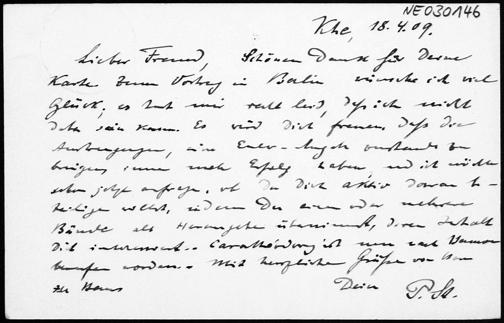 NE030146
Khe, 18.4.09.
Lieber Freund, Schönen Dank für Deine
Karte. Zum Vortrag in Berlin wünsche ich viel
Glück, es tut mir recht leid, daß ich nicht
dabei sein kann. Es wird Dich freuen, daß die
Anstrengungen, eine Euler-Ausgabe zustande zu
bringen, immer mehr Erfolg haben, und ich möchte
schon jetzt anfragen, ob Du Dich aktiv daran be-
teiligen willst, indem Du einen oder mehrere
Bände als Herausgeber übernimmst, deren Inhalt
Dich interessiert. - Carathéodory ist nun nach Hannover
berufen worden. - Mit herzlichen Grüßen von Haus
zu Haus Dein P. St.